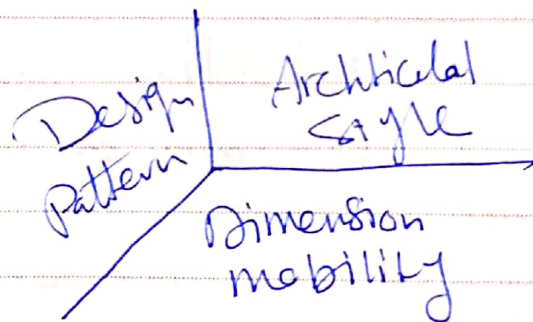 Design
Pattern
Archticelal
Style
Dimension
mobility